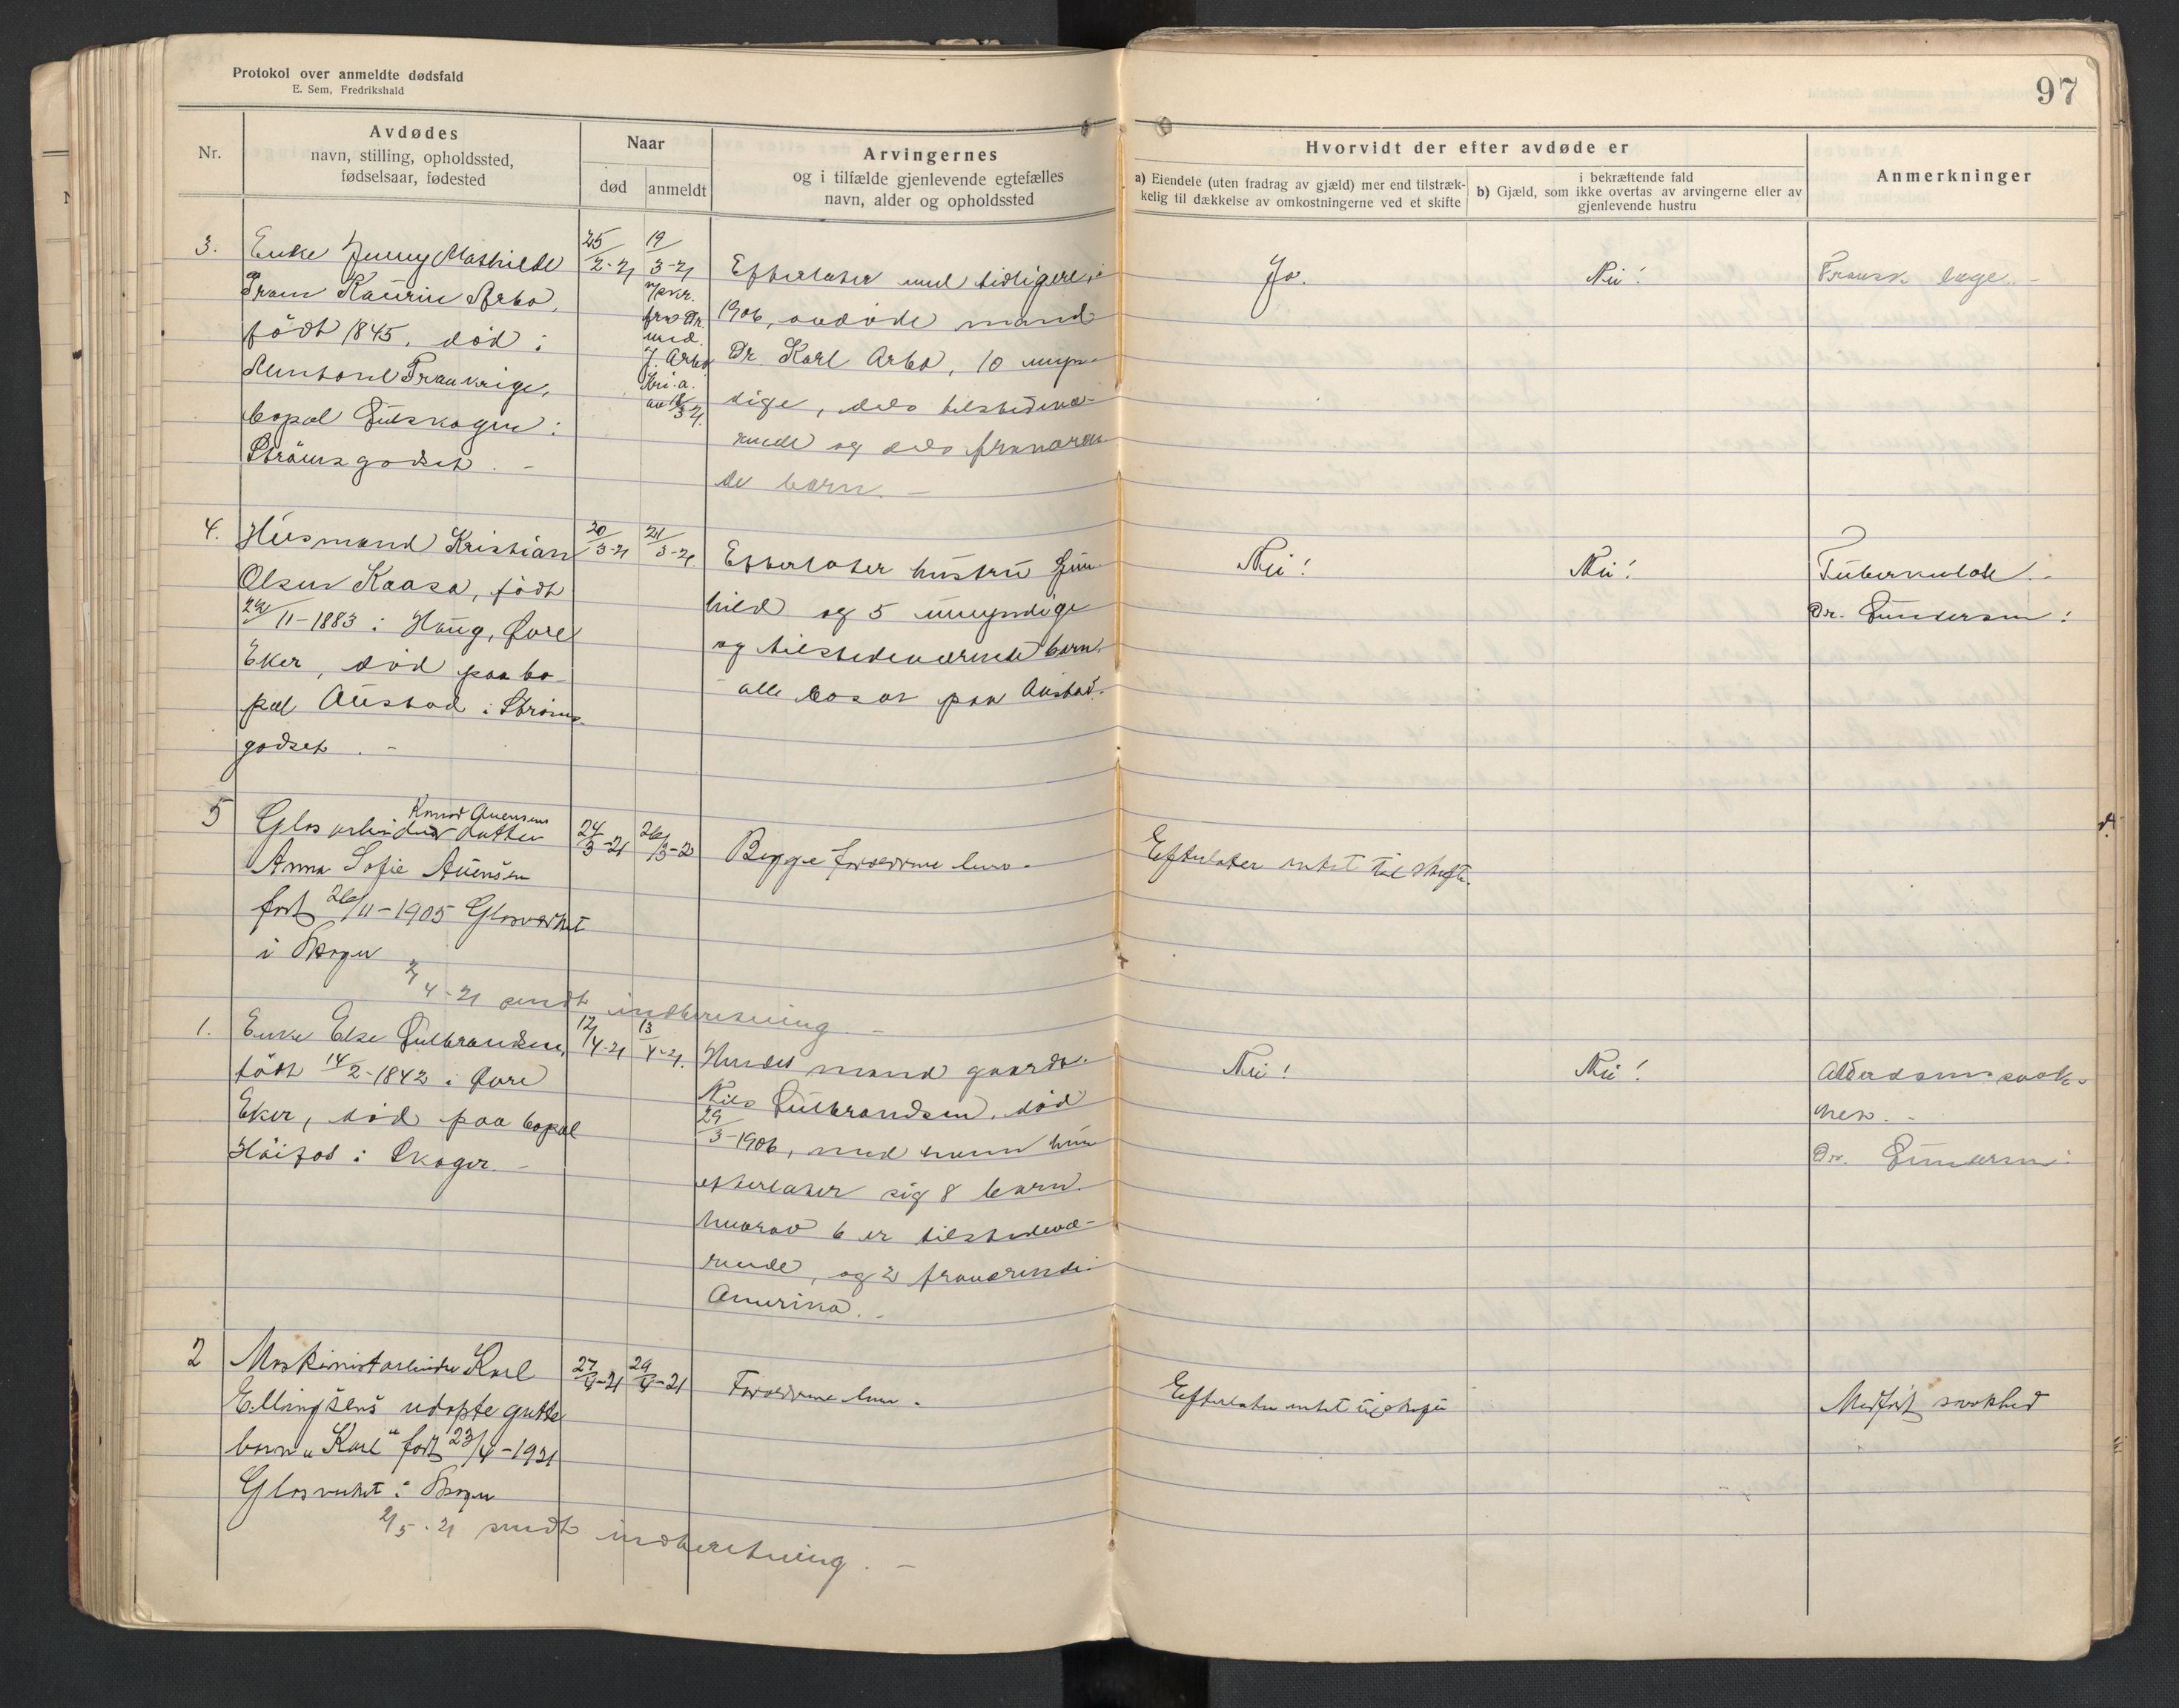 Protokol over anmeldte dødsfald
E. Sem, Fredrikshald
97
Nr.
Avdødes
navn, stilling, opholdssted,
fødselsaar, fødested
Naar
død
anmeldt
Arvingernes
og i tilfælde gjenlevende egtefælles
navn, alder og opholdssted
Hvorvidt der efter avdøde er
a) Eiendele (uten fradrag av gjæld) mer end tilstræk-
kelig til dækkelse av omkostningerne ved et skifte
i bekræftende fald
b) Gjæld, som ikke overtas av arvingerne eller av
gjenlevende hustru
Anmerkninger
3.
Enke Jenny Mathilde
Pram Kaurin Arbo,
födt 1845, död i
Mentone Frankrige,
bopæl Gulskogen i
Strömsgodset. -
25/2-21
19/3-21
v/skr.
fra Dr.
med.
J. Arbo
Kr.i.a.
av 18/3-21.
Efterlater med tidligere, i
1906, avdöde mand
Dr. Karl Arbo, 10 myn-
dige, dels tilstedevæ-
rende og dels fraværen-
de barn. -
Ja.
Nei!
Fransk læge. -
4.
Husmand Kristian
Olsen Kaasa, födt
22/11-1883 i Haug, Övre
Eker, död paa bo-
pæl Austad i Ströms-
godset. -
20/3-21
21/3-21
Efterlater hustru Gun-
hild og 5 umyndige
og tilstedeværende barn.
- alle bosat paa Austad.
Nei!
Nei!
Tuberkulose. -
Dr. Gundersen:
5
Knud Auensens
Glasarbeider datter
Anna Sofie Auensen
født 26/11-1905 Glasværket
i Skoger
24/3-21
26/3-2
Begge forældrene leve.
Efterlater intet til skifte.
2/4-21 sendt indberetning. -
1.
Enke Else Gulbrandsen,
födt 14/2-1842 i Övre
Eker, död paa bopæl
Höifos i Skoger. -
12/4-21
13/4-21.
Hendes mand gaardbr.
Nils Gulbrandsen, död
29/3-1906, med hvem hun
efterlater sig 8 barn.
hvorav 6 er tilstedevæ-
rende, og 2 fraværende i
Amerika. -
Nei!
Nei!
Alderdomssvak-
het. -
Dr. Gundersen:
2
Maskinistarbeider Karl
Ellingsens udøpte gutte
barn „Karl“ født 23/4-1921
Glasverket i Skoger
27/4-21
29/4-21
Forældrene leve.
Efterlater intet til skifte
Medfødt svakhed
2/5-21 sendt indberetning. -